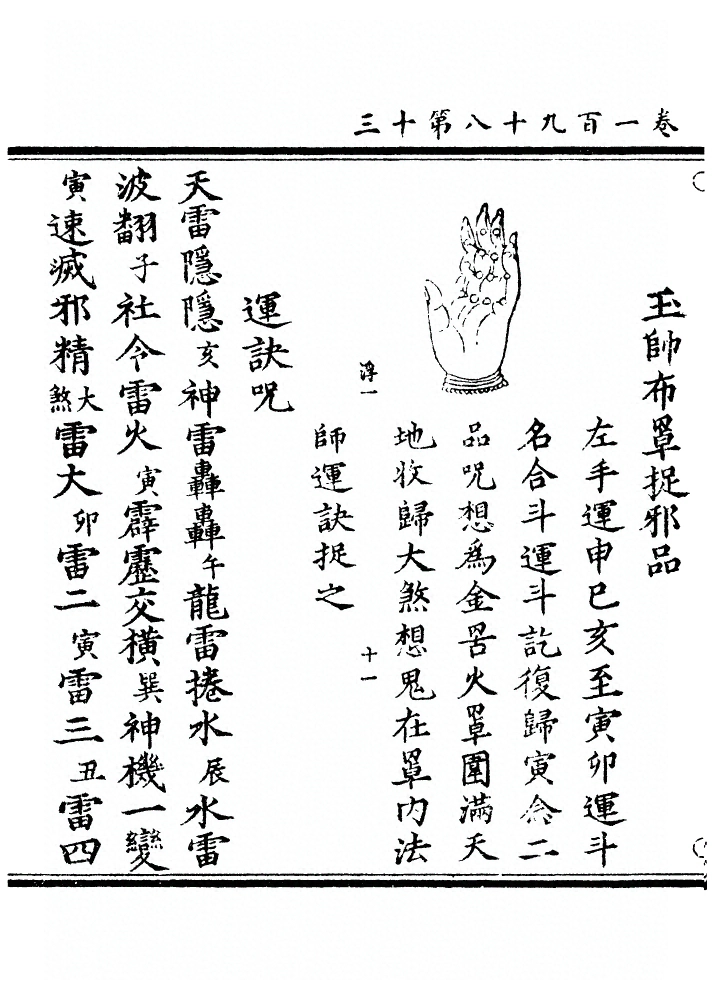 三十第八十九百一卷
玉帥布罩捉邪品
左手運申巳亥至寅卯運斗
名合斗運斗訖復歸寅念二
品呪想為金罟火罩圍滿天
地收歸大煞想鬼在罩内法
浮一
十一
師運訣捉之
運訣呪
天雷隱隱亥神雷轟轟午龍雷捲水辰水雷
波翻子社令雷火寅霹靂交橫巽神機一變
寅速滅邪精大煞雷大卯雷二寅雷三丑雷四